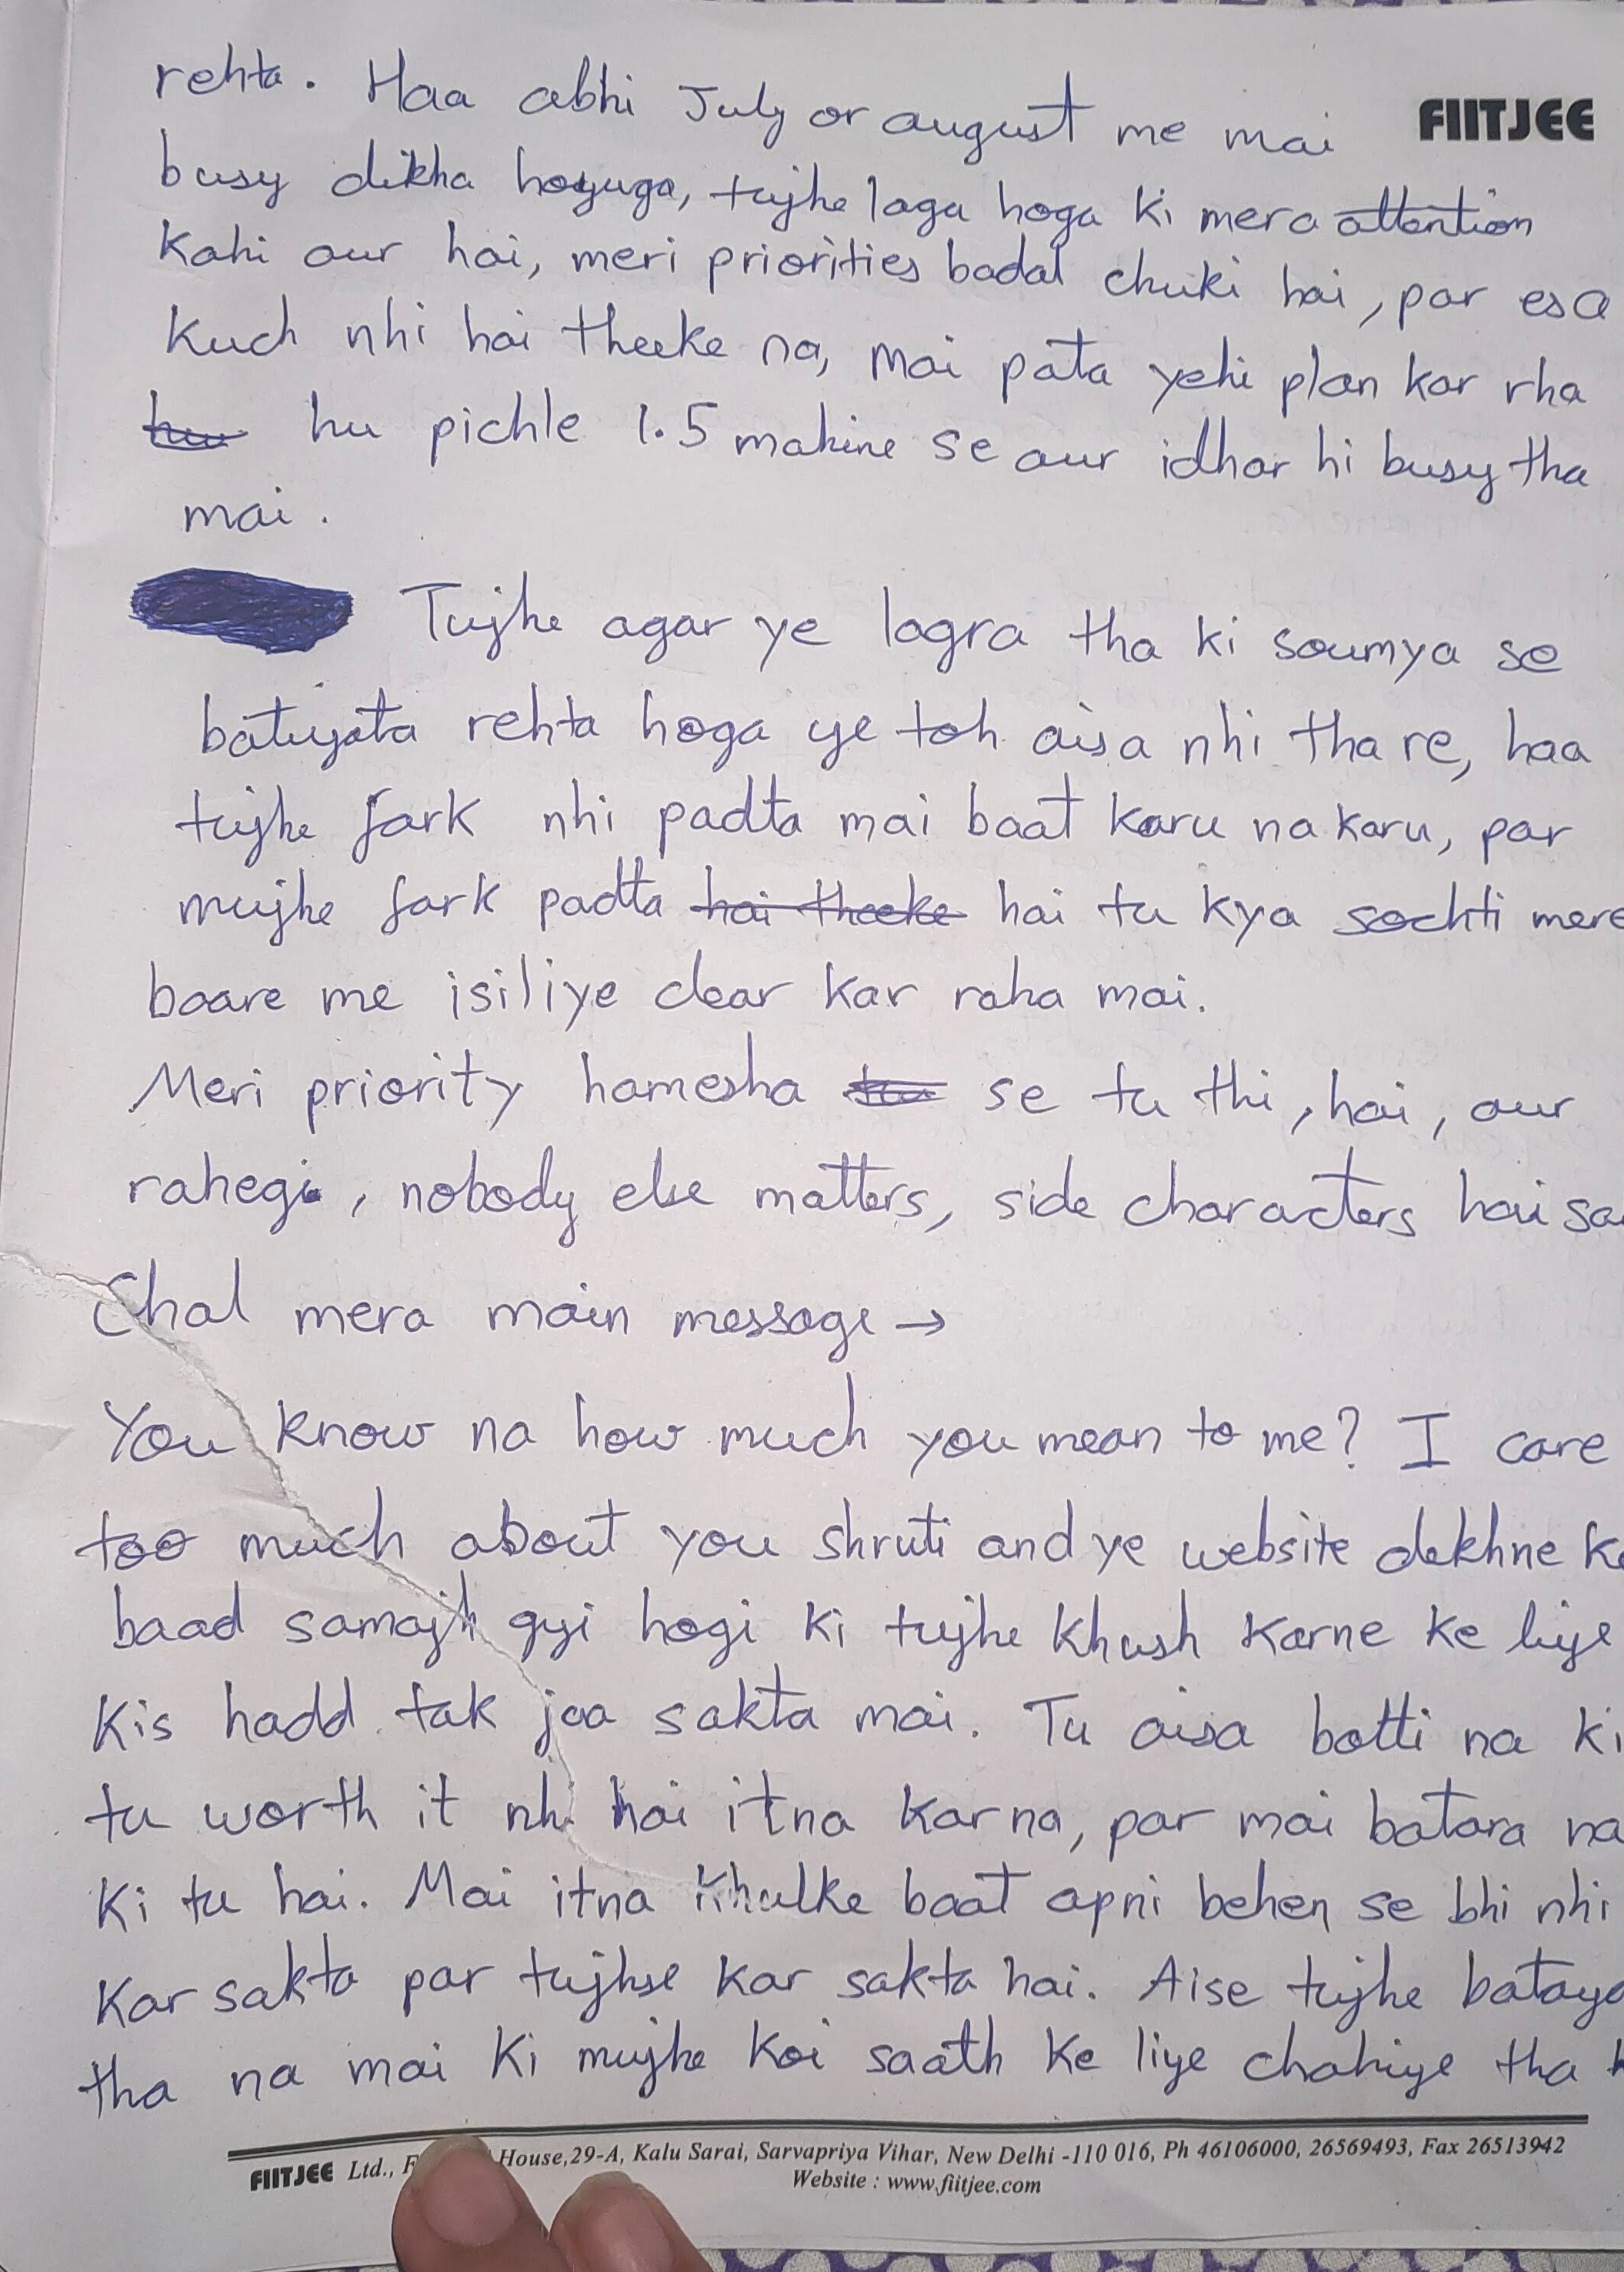 rehta. Haa abhi July or august me mai
FIITJEE
busy dikha hoyuga, tujhe laga hoga ki mera attention
kahi aur hai, meri priorities badal chuki hai, par esa
kuch nhi hai theeke na, mai pata yehi plan kar rha
hu hu pichle 1.5 mahine se aur idhar hi busy tha
mai.
Tujhe agar ye lagra tha ki soumya se
batiyata rehta hoga ye toh aisa nhi tha re, haa
tujhe fark nhi padta mai baat karu na karu, par
mujhe fark padta hai theeke hai tu kya sochti mere
baare me isiliye clear kar raha mai.
Meri priority hamesha se tu thi, hai, aur
rahegi, nobody else matters, side characters hai
Chal mera main message →
You know na how much you mean to me? I care
too much about you shruti and ye website dekhne
baad samajh gyi hogi ki tujhe khush karne ke liye
kis hadd tak jaa sakta mai. Tu aisa bolti na ki
tu worth it nhi hai itna karna, par mai batara na
ki tu hai. Mai itna khulke baat apni behen se bhi nhi
kar sakta par tujhse kar sakta hai. Aise tujhe
tha na mai ki mujhe koi saath ke liye chahiye tha
FIITJEE Ltd., House,29-A, Kalu Sarai, Sarvapriya Vihar, New Delhi -110 016, Ph 46106000, 26569493, Fax 26513942
Website : www.fiitjee.com